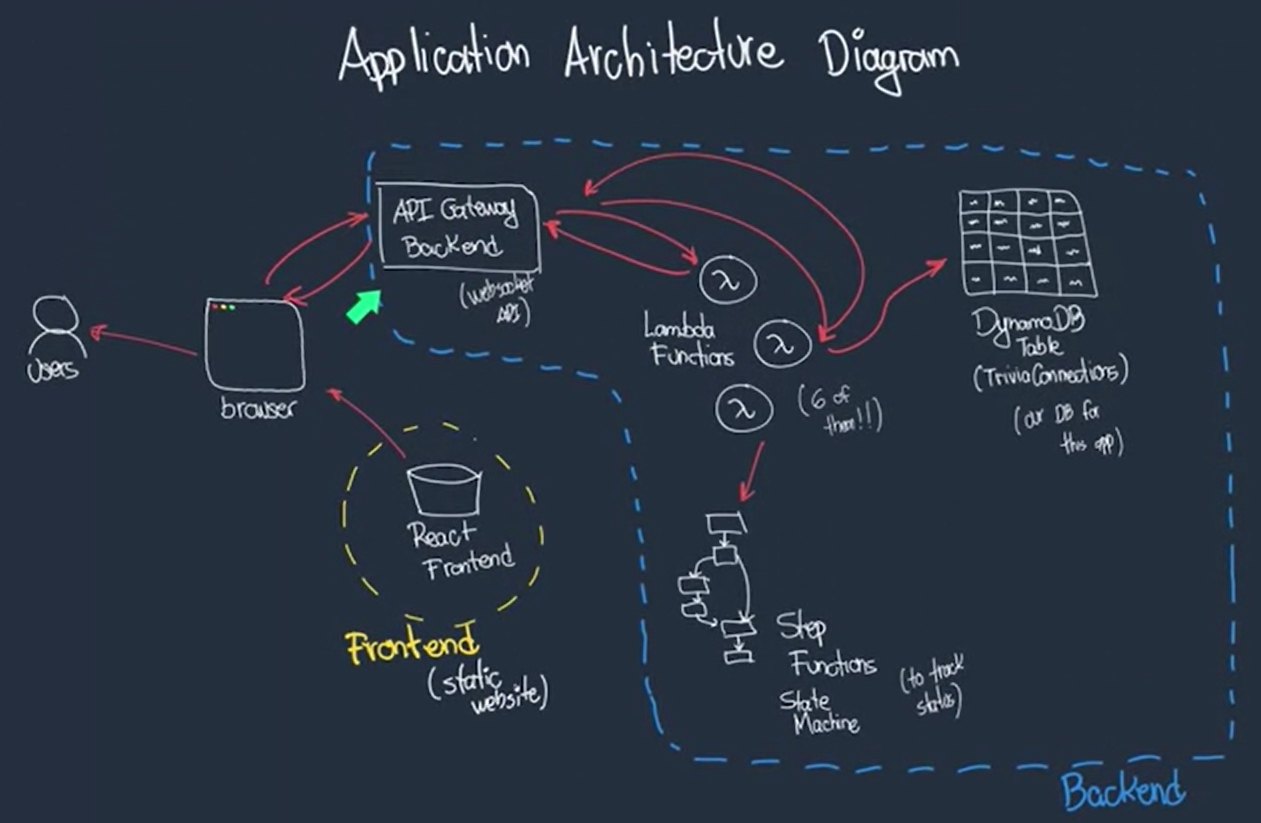 Application Architecture Diagram
API Gateway
Backend
(websocket
API)
Users
browser
λ
Lambda
Functions
λ
λ
(6 of
them!!)
DynamoDB
Table
(TriviaConnections)
(our DB for
this app)
React
Frontend
Frontend
(static
website)
Step
Functions
State
Machine
(to track
status)
Backend